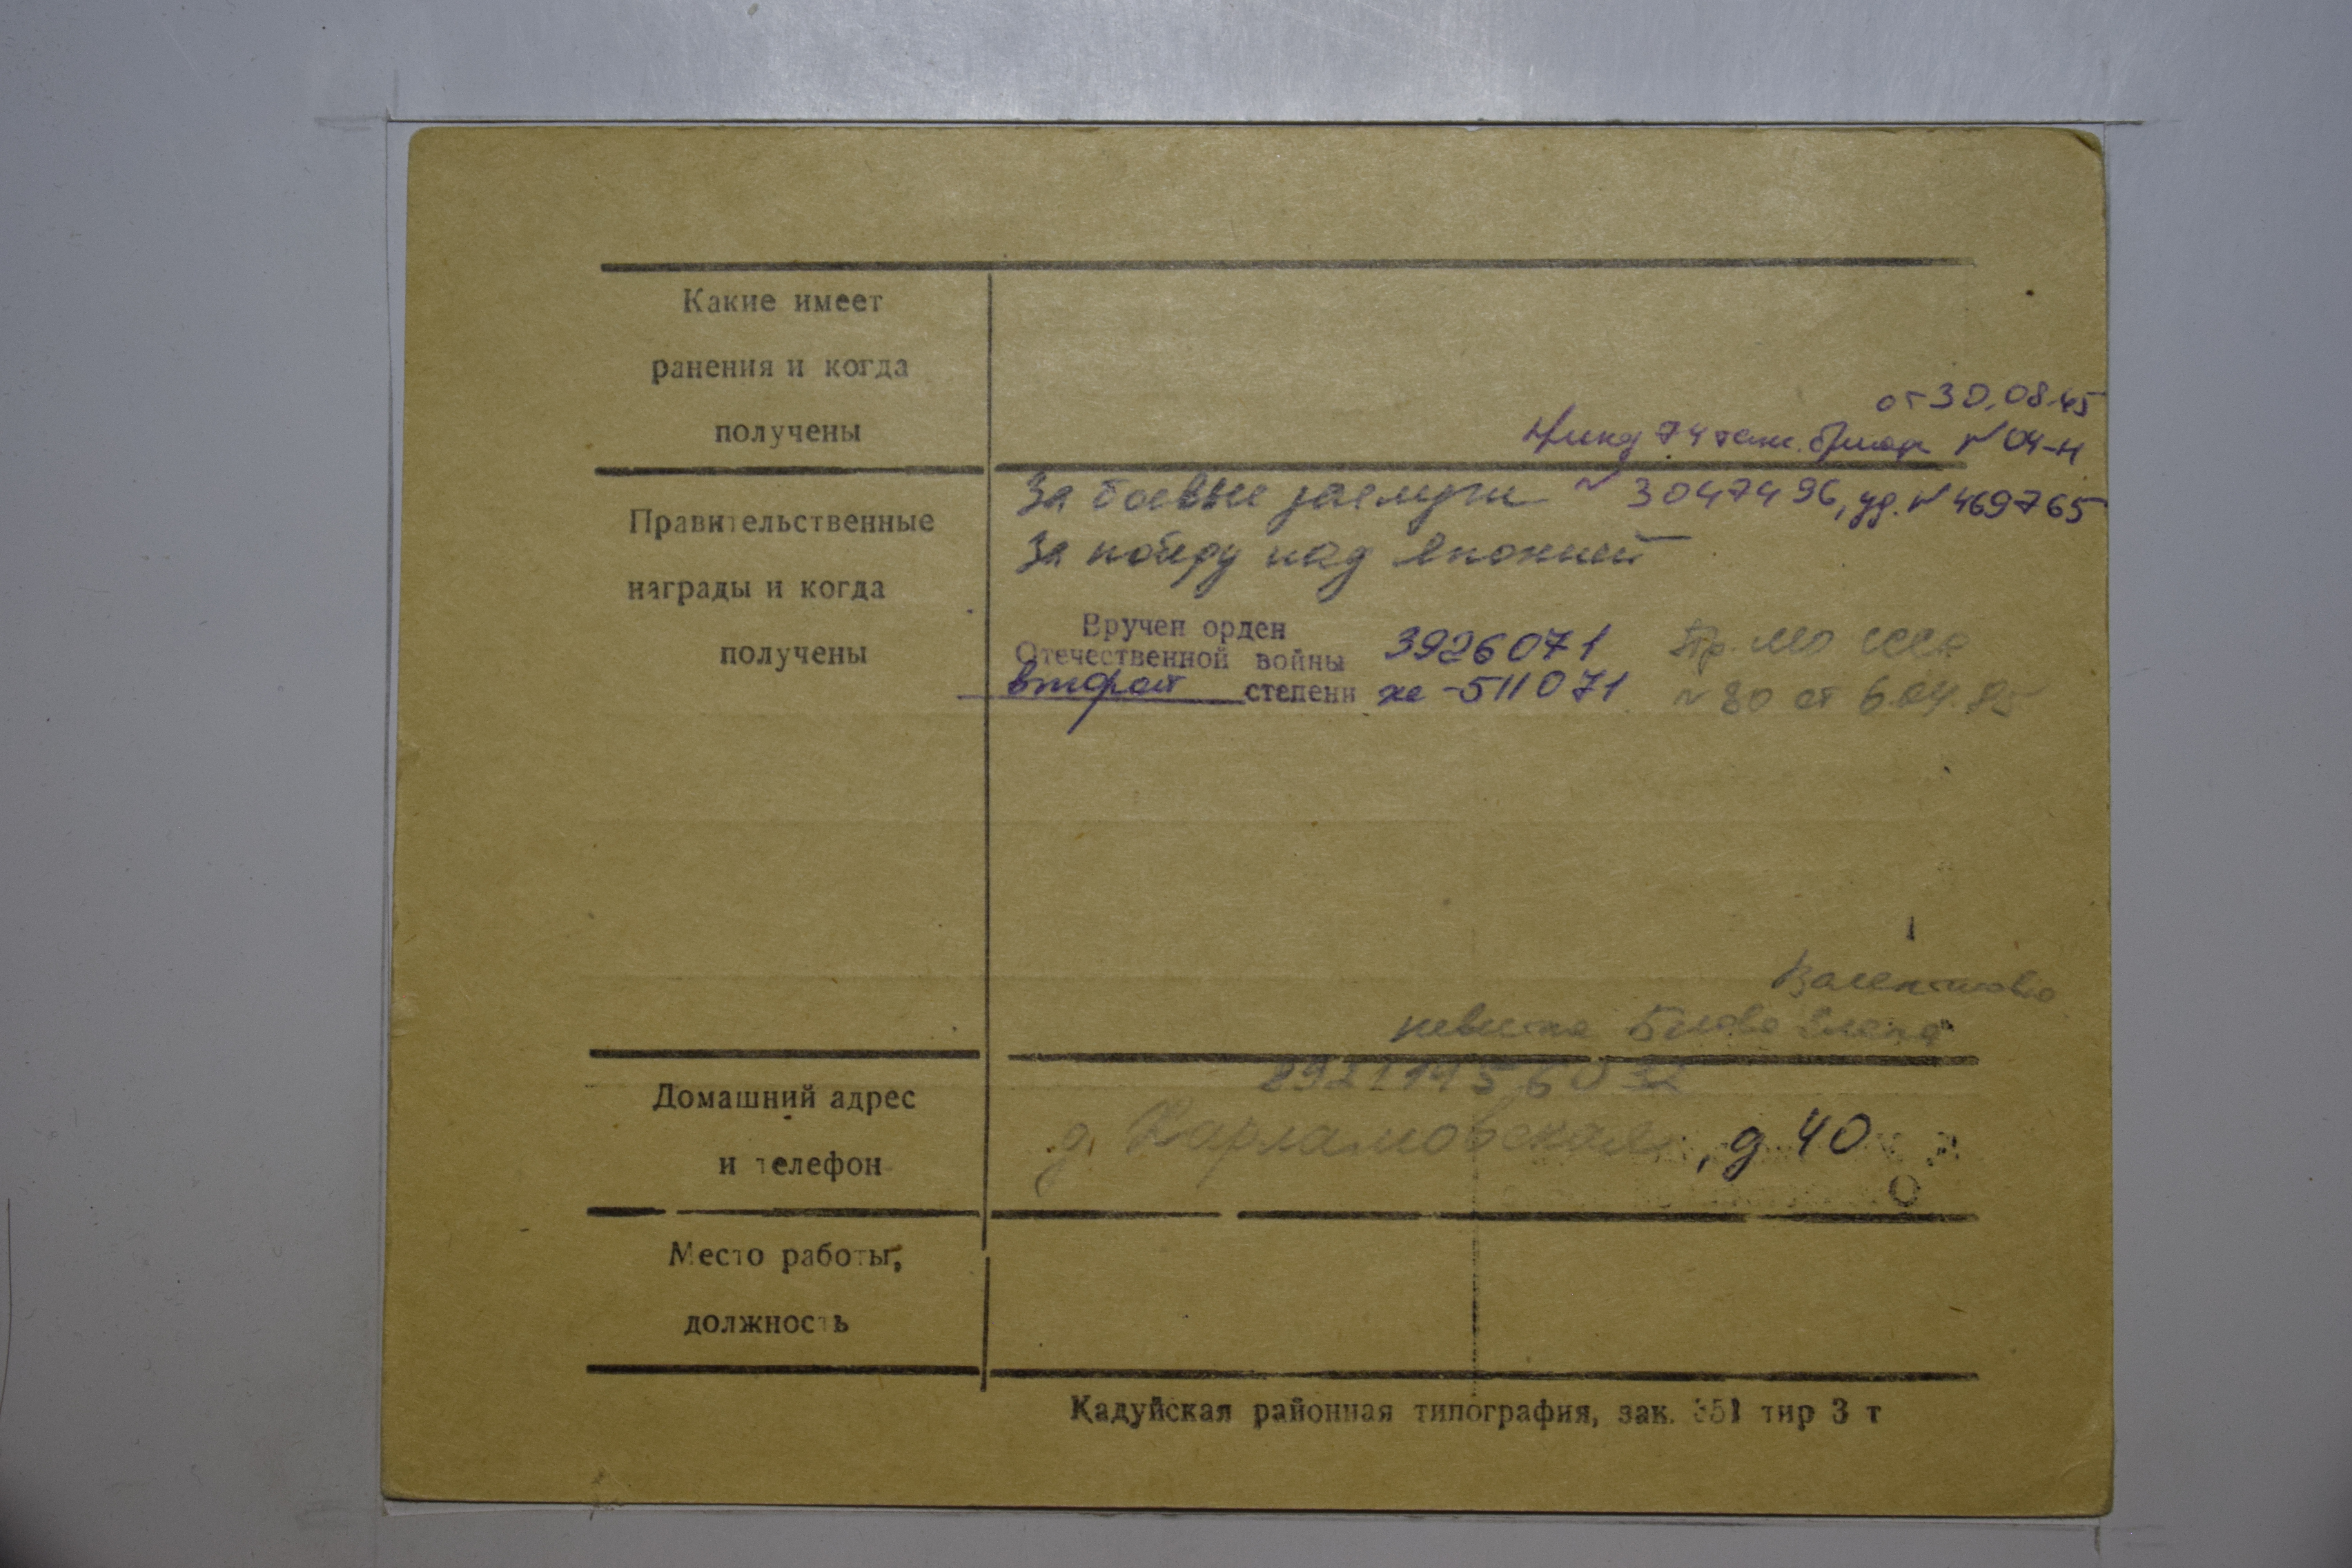 Какие имеет
ранения и когда
получены
от 30.08.45
74 танк. № 04-Н
Правительственные
награды и когда
получены
За боевые заслуги № 3047496, уд. № 469765
За победу над Японией
Вручен орден
Отечественной войны 3926071 Пр. МО СССР
второй степени 511071 № 80 от 6.04.85
Валентиновна
невестка Елена
Домашний адрес
и телефон
д. Харламовская, д 40
Место работы,
должность
Кадуйская районная типография, зак. 351 тир 3 т